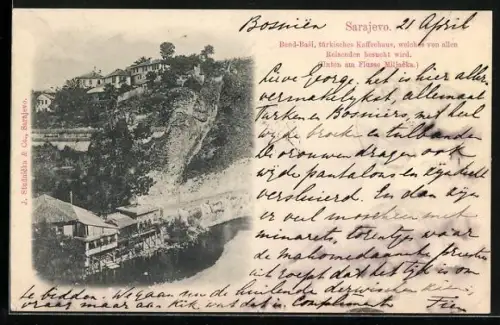 Bosniën
Sarajevo.
21 April
Bend-Baśi, türkisches Kaffeehaus, welches von allen
Reisenden besucht wird.
(Unten am Flusse Miljačka.)
J. Studnička & Co., Sarajevo.
Lieve George. het is hier aller
vermakelykst, allemaal
Turken en Bosniers, met heel
wijde broeken en tulbanden
De vrouwen dragen ook
wijde pantalons en zijn dicht
versluierd. En dan zijn
er veel moskeeën met
minarets, torentjes waar
de mahomedaansche priesters
uit roept dat het tijk is om
te bidden. We gaan nu de huilende derwischen zien,
vraag maar aan Kik wat dat is. Compliments